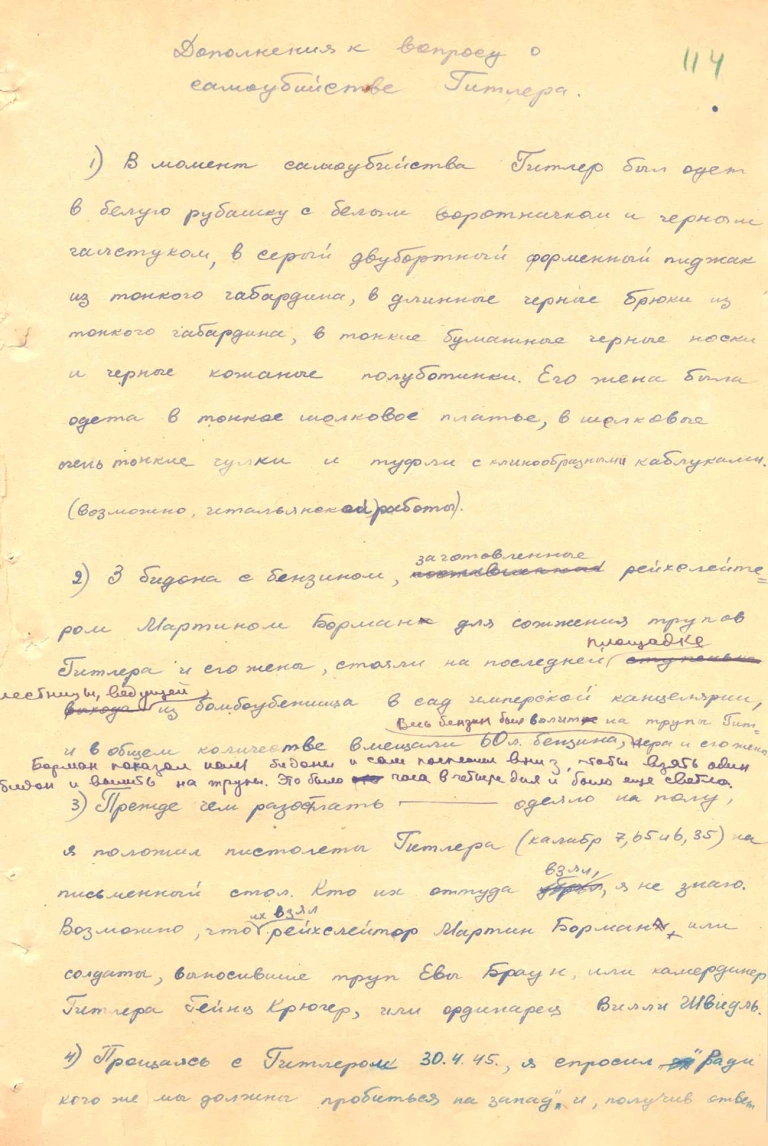 Дополнения к вопросу о
самоубийстве Гитлера.
114
1) В момент самоубийства Гитлер был одет
в белую рубашку с белым воротничком и черным
галстуком, в серый двубортный форменный пиджак
из тонкого габардина, в длинные черные брюки из
тонкого габардина, в тонкие бумажные черные носки
и черные кожаные полуботинки. Его жена была
одета в тонкое шолковое платье, в шолковые
очень тонкие чулки и туфли с клинообразными каблуками.
(возможно, итальянской работы).
заготовленные
2) 3 бидона с бензином, рейхслейте=
ром Мартином Борман для сожжения трупов
площадке
Гитлера и его жены, стояли на последней
лестницы, ведущей
выхода из бомбоубежища в сад имперской канцелярии,
Весь бензин был вылит на трупы Гит-
и в общем количестве вмещали 60 л. бензина, лера и его жены
Борман показал нам бидоны и сам поспешил вниз, чтобы взять один
бидон и вылить на трупы. Это было часа в четыре дня и было еще светло.
3) Прежде чем разостлать одеяло на полу,
я положил пистолеты Гитлера (калибр 7,65 и 6,35) на
взял,
письменный стол. Кто их оттуда я не знаю.
их взял
Возможно, что рейхслейтор Мартин Борман, или
солдаты, выносившие труп Евы Браун, или камердинер
Гитлера Гейнц Крюгер, или ординарец Вилли Швидль.
4) Прощаясь с Гитлером 30.4.45., я спросил „Ради
кого же мы должны пробиться на запад", и, получив ответ